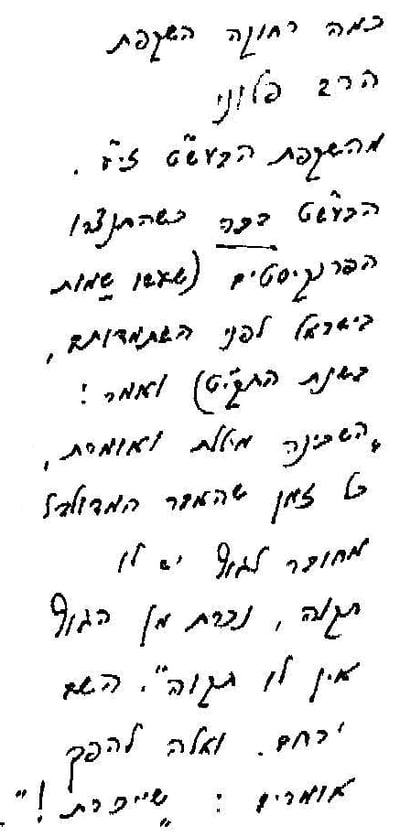 כמה רחוקה השקפת
הרב פלוני
מהשקפת הבעש"ט זי"ע.
הבעש"ט בכה כשהתנצרו
הפרנקיסטים (שעשו שמות
בישראל לפני השתמדותם,
בשנת התקי"ט) ואמר:
"השכינה מיללת ואומרת,
כל זמן שהאבר המדולדל
מחובר לגוף יש לו
תקוה, נכרת מן הגוף
אין לו תקוה". השם
ירחם. ואלה להפך
אומרים: "שייכרת!".